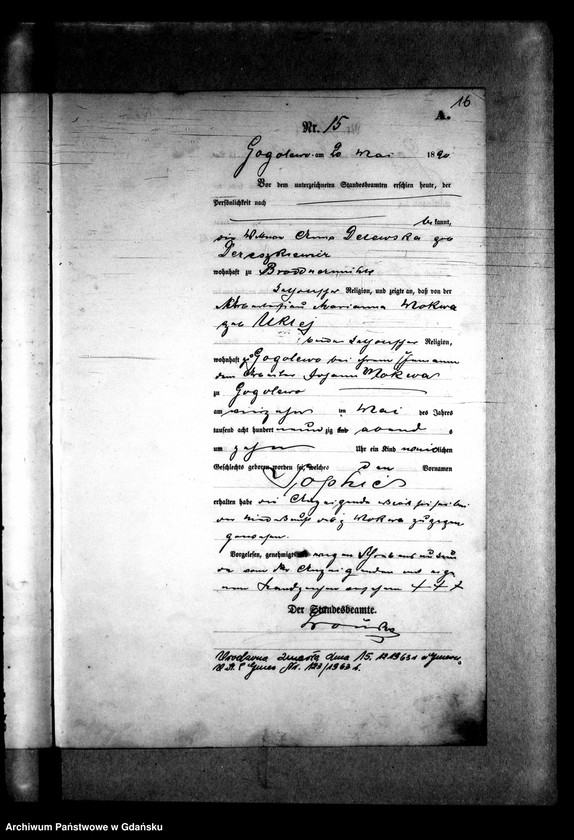 16
A.
Nr. 15
Gogolewo am 20 Mai 1890
Vor dem unterzeichneten Standesbeamten erschien heute, der
Persönlichkeit nach
bekannt,
die Wittwe Anna Delewska geb
Dereszkiewicz
wohnhaft zu
katholischer Religion, und zeigte an, daß von der
Arbeiterfrau Marianna Mokwa
geb Uklej
beide katholischer Religion,
wohnhaft zu Gogolewo bei ihrem Ehemann
dem Arbeiter Johann Mokwa
zu Gogolewo
am im Mai des Jahres
tausend acht hundert neunzig abend s
um zehn Uhr ein Kind weiblichen
Geschlechts geboren worden sei, welches den Vornamen
Sophie
erhalten habe die Anzeigende daß sie bei
der Niederkunft der Mokwa zugegen
gewesen.
Vorgelesen, genehmigt und wegen Schreibensunkun
de von der Anzeigenden mit eige
nem Handzeichen versehen + + +
Der Standesbeamte.
Urodzona zmarła dnia 15. 12 1963 r
U.S.C. Nr. 123/1963 r.
Archiwum Państwowe w Gdańsku